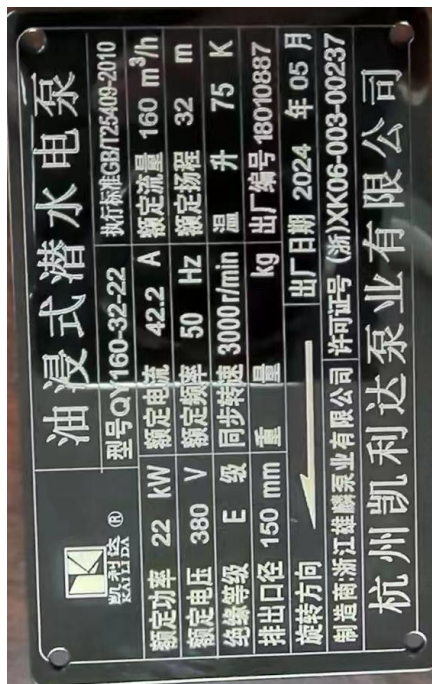 凯利达 ®
KAILIDA
油浸式潜水电泵
型号QY160-32-22 执行标准GB/T25409-2010
额定功率 22 kW 额定电流 42.2 A 额定流量 160 m³/h
额定电压 380 V 额定频率 50 Hz 额定扬程 32 m
绝缘等级 E 级 同步转速 3000r/min 温升 75 K
排出口径 150 mm 重量 kg 出厂编号 18010887
旋转方向 出厂日期 2024 年 05 月
制造商:浙江雄麟泵业有限公司 许可证号 (浙)XK06-003-00237
杭州凯利达泵业有限公司